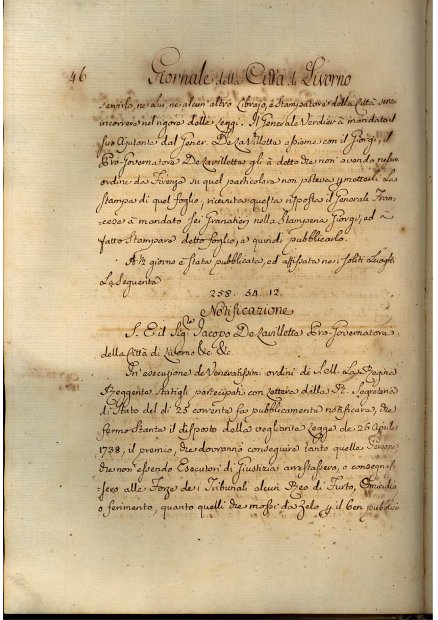 46 Giornale della Città di Livorno
servirlo, ne Lui, ne alcun altro Librajo, o Stampatore della Città senza
incorrere nel rigore delle Leggi. Il Generale Verdier à mandato il
suo Ajutante dal Gener. De Lavilletta assieme con il Giorgi, il
Pro-Governatore De Lavilletta gli à detto che non avendo nelun
ordine da Firenze su quel particolare non poteva permetterli La
stampa di quel foglio, ricevuta questa risposta il Generale Fran-
cese à mandato sei Granatieri nella Stamperia Giorgi, ed à
fatto Stampare detto foglio, e quindi pubblicarlo.
A ½ giorno è stata pubblicata, ed affissata nei soliti Luoghi
La seguente
258. 54. 12.
Notificazione
S. E. il Sig.r Jacopo De Lavilletta Pro-Governatore
della Città di Livorno &c. &c.
In esecuzione de Veneratissimi ordini di S. M. La Regina
Reggente Statigli partecipati con Lettera della R. Segreteria
di Stato del dì 25 corrente fa pubblicamente notificare, che
fermo Stante il disposto della vegliante Legge de 26 Aprile
1738, il premio, che dovranno conseguire tanto quelle Persone
che non essendo Esecutori di Giustizia arrestassero, o consegnas-
sero alle Forze dei Tribunali alcun Reo di Furto, Omicidio
o ferimento, quanto quelli che mossi da zelo p il ben pubblico